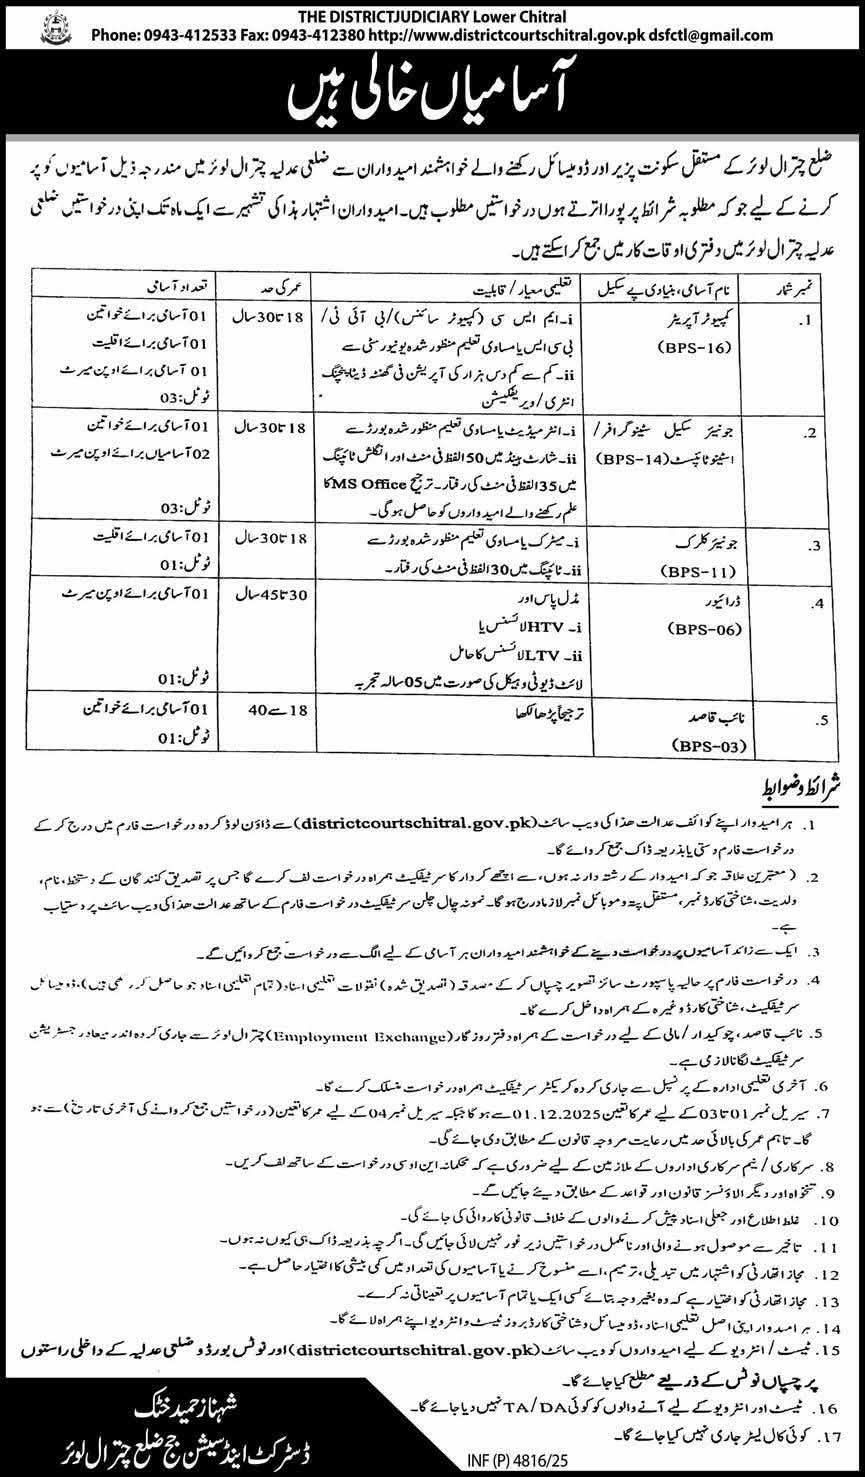 THE DISTRICTJUDICIARY Lower Chitral
Phone: 0943-412533 Fax: 0943-412380 http://www.districtcourtschitral.gov.pk dsfctl@gmail.com
آسامیاں خالی ہیں
ضلع چترال لوئر کے مستقل سکونت پزیر اور ڈومیسائل رکھنے والے خواہشمند امیدواران سے ضلعی عدلیہ چترال لوئر میں مندرجہ ذیل آسامیوں کو پر
کرنے کے لیے جو کہ مطلوبہ شرائط پر پورا اترتے ہوں درخواستیں مطلوب ہیں۔ امیدواران اشتہار ہذا کی تشہیر سے ایک ماہ تک اپنی درخواستیں ضلعی
عدلیہ چترال لوئر میں دفتری اوقات کار میں جمع کراسکتے ہیں۔
نمبر شمار	نام آسامی، بنیادی پے سکیل	تعلیمی معیار/ قابلیت	عمر کی حد	تعداد آسامی
1.	کمپیوٹر آپریٹر	i۔ ایم ایس سی (کمپیوٹر سائنس)/ بی آئی ٹی/	18 تا 30 سال	01 آسامی برائے خواتین
(BPS-16)	بی سی ایس یا مساوی تعلیم منظور شدہ یونیورسٹی سے	01 آسامی برائے اقلیت
ii۔ کم سے کم دس ہزار کی آپریشن فی گھنٹہ ڈیٹا پنچنگ	01 آسامی برائے اوپن میرٹ
انٹری/ ویریفکیشن	ٹوٹل: 03
2.	جونیئر سکیل سٹینوگرافر/	i۔ انٹرمیڈیٹ یا مساوی تعلیم منظور شدہ بورڈ سے	18 تا 30 سال	01 آسامی برائے خواتین
اسٹینو ٹائپسٹ (BPS-14)	ii۔ شارٹ ہینڈ میں 50 الفظ فی منٹ اور انگلش ٹائپنگ	02 آسامیاں برائے اوپن میرٹ
میں 35 الفظ فی منٹ کی رفتار۔ ترجیح MS Office کا
علم رکھنے والے امیدواروں کو حاصل ہوگی۔	ٹوٹل: 03
3.	جونیئر کلرک	i۔ میٹرک یا مساوی تعلیم منظور شدہ بورڈ سے	18 تا 30 سال	01 آسامی برائے اقلیت
(BPS-11)	ii۔ ٹائپنگ میں 30 الفظ فی منٹ کی رفتار۔	ٹوٹل: 01
4.	ڈرائیور	مڈل پاس اور	30 تا 45 سال	01 آسامی برائے اوپن میرٹ
(BPS-06)	i۔ HTV لائسنس یا
ii۔ LTV لائسنس کا حامل
لائٹ ڈیوٹی وہیکل کی صورت میں 05 سالہ تجربہ	ٹوٹل: 01
5.	نائب قاصد	ترجیحاً پڑھا لکھا	18 سے 40	01 آسامی برائے خواتین
(BPS-03)	ٹوٹل: 01
شرائط و ضوابط
1. ہر امیدوار اپنے کوائف عدالت ھذا کی ویب سائٹ (districtcourtschitral.gov.pk) سے ڈاؤن لوڈ کردہ درخواست فارم میں درج کر کے
درخواست فارم دستی یا بذریعہ ڈاک جمع کروائے گا۔
2. (معتبرین علاقہ جو کہ امیدوار کے رشتہ دار نہ ہوں، سے اچھے کردار کا سرٹیفکیٹ ہمراہ درخواست لف کرے گا جس پر تصدیق کنندگان کے دستخط، نام،
ولدیت، شناختی کارڈ نمبر، مستقل پتہ و موبائل نمبر لازماً درج ہوگا۔ نمونہ چال چلن سرٹیفکیٹ درخواست فارم کے ساتھ عدالت ھذا کی ویب سائٹ پر دستیاب
ہے۔
3. ایک سے زائد آسامیوں پر درخواست دینے کے خواہشمند امیدواران ہر آسامی کے لیے الگ سے درخواست جمع کروائیں گے۔
4. درخواست فارم پر حالیہ پاسپورٹ سائز تصویر چسپاں کر کے مصدقہ (تصدیق شدہ) نقولات تعلیمی اسناد (تمام تعلیمی اسناد جو حاصل کر رکھی ہیں)، ڈومیسائل
سرٹیفکیٹ، شناختی کارڈ وغیرہ کے ہمراہ داخل کرے گا۔
5. نائب قاصد، چوکیدار/ مالی کے لیے درخواست کے ہمراہ دفتر روزگار (Employment Exchange) چترال لوئر سے جاری کردہ اندر میعاد رجسٹریشن
سرٹیفکیٹ لگانا لازمی ہے۔
6. آخری تعلیمی ادارہ کے پرنسپل سے جاری کردہ کریکٹر سرٹیفکیٹ ہمراہ درخواست منسلک کرے گا۔
7. سیریل نمبر 01 تا 03 کے لیے عمر کا تعین 01.12.2025 سے ہوگا جبکہ سیریل نمبر 04 کے لیے عمر کا تعین (درخواستیں جمع کروانے کی آخری تاریخ) سے ہو
گا۔ تاہم عمر کی بالائی حد میں رعایت مروجہ قانون کے مطابق دی جائے گی۔
8. سرکاری/ نیم سرکاری اداروں کے ملازمین کے لیے ضروری ہے کہ محکمانہ این او سی درخواست کے ساتھ لف کریں۔
9. تنخواہ اور دیگر الاؤنسز قانون اور قواعد کے مطابق دیئے جائیں گے۔
10. غلط اطلاع اور جعلی اسناد پیش کرنے والوں کے خلاف قانونی کاروائی کی جائے گی۔
11. تاخیر سے موصول ہونے والی اور نامکمل درخواستیں زیر غور نہیں لائی جائیں گی۔ اگرچہ بذریعہ ڈاک ہی کیوں نہ ہوں۔
12. مجاز اتھارٹی کو اشتہار میں تبدیلی، ترمیم، اسے منسوخ کرنے یا آسامیوں کی تعداد میں کمی بیشی کا اختیار حاصل ہے۔
13. مجاز اتھارٹی کو اختیار ہے کہ وہ بغیر وجہ بتائے کسی ایک یا تمام آسامیوں پر تعیناتی نہ کرے۔
14. ہر امیدوار اپنی اصل تعلیمی اسناد، ڈومیسائل و شناختی کارڈ بروز ٹیسٹ و انٹرویو اپنے ہمراہ لائے گا۔
15. ٹیسٹ/ انٹرویو کے لیے امیدواروں کو ویب سائٹ (districtcourtschitral.gov.pk) اور نوٹس بورڈ و ضلعی عدلیہ کے داخلی راستوں
پر چسپاں نوٹس کے ذریعے مطلع کیا جائے گا۔
16. ٹیسٹ اور انٹرویو کے لیے آنے والوں کو کوئی TA/DA نہیں دیا جائے گا۔
17. کوئی کال لیٹر جاری نہیں کیا جائے گا۔
شہناز حمید خٹک
ڈسٹرکٹ اینڈ سیشن جج ضلع چترال لوئر
INF (P) 4816/25